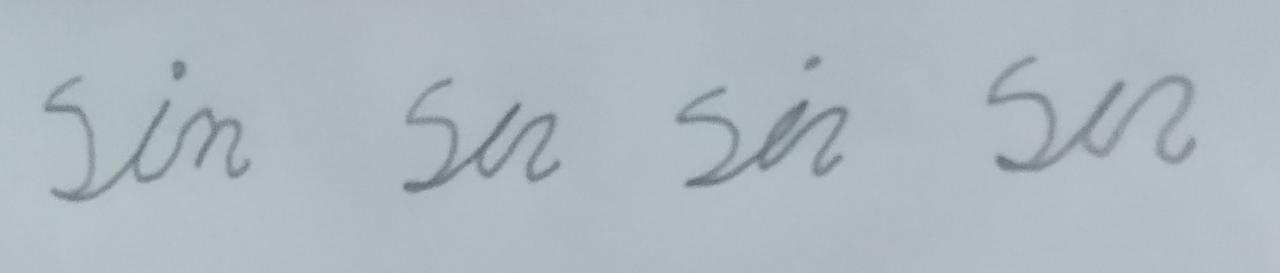 sin sin sin sin